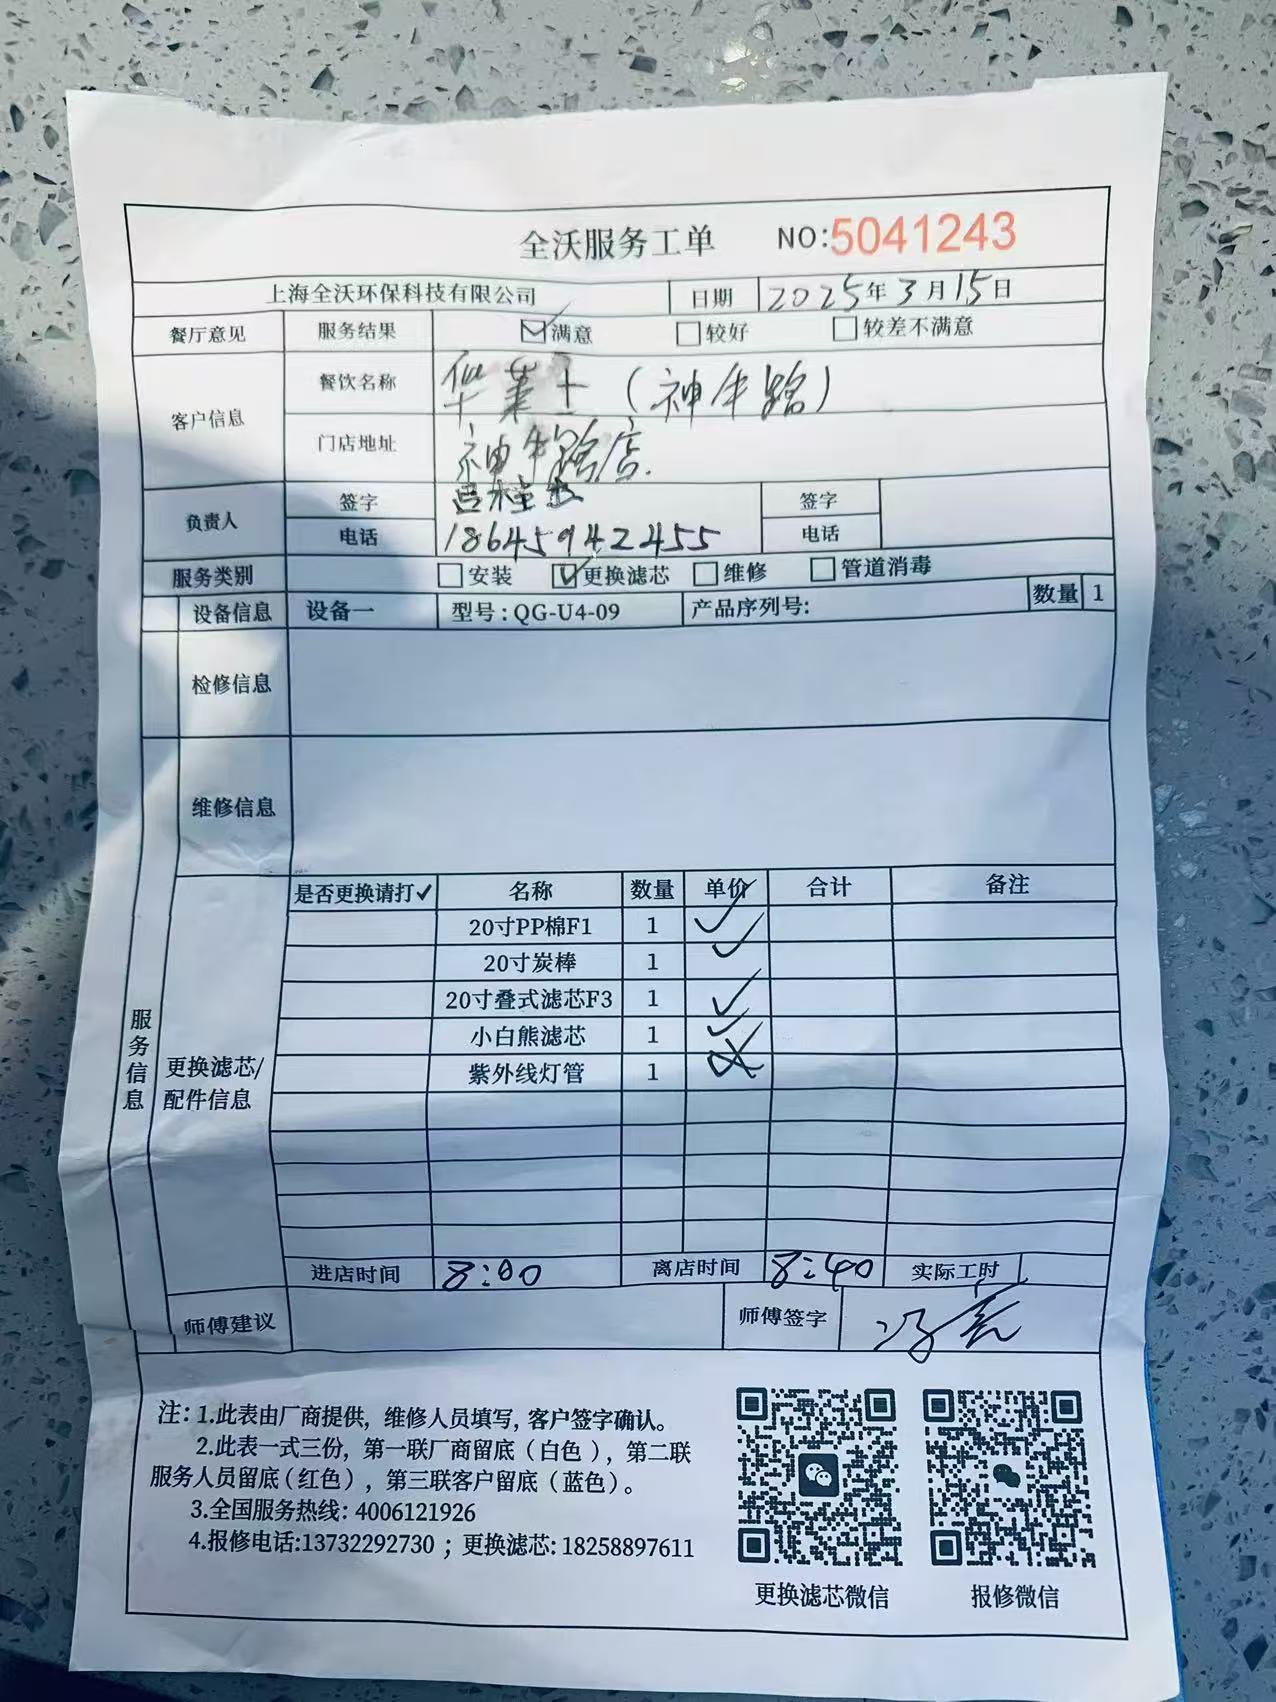 全沃服务工单 NO:5041243
上海全沃环保科技有限公司 日期 2025年3月15日
餐厅意见 服务结果 ☑满意 □较好 □较差不满意
客户信息 餐饮名称 华莱士（神牛路）
门店地址 神牛路店.
负责人 签字 签字
电话 18645942455 电话
服务类别 □安装 ☑更换滤芯 □维修 □管道消毒
设备信息 设备一 型号:QG-U4-09 产品序列号: 数量 1
检修信息
维修信息
服务信息
更换滤芯/配件信息
是否更换请打✓ 名称 数量 单价 合计 备注
20寸PP棉F1 1 ✓
20寸炭棒 1 ✓
20寸叠式滤芯F3 1 ✓
小白熊滤芯 1 ✓
紫外线灯管 1 ✗
进店时间 8:00 离店时间 8:40 实际工时
师傅建议 师傅签字 冯亮
注: 1.此表由厂商提供, 维修人员填写, 客户签字确认。
2.此表一式三份, 第一联厂商留底（白色）, 第二联
服务人员留底(红色), 第三联客户留底（蓝色）。
3.全国服务热线: 4006121926
4.报修电话:13732292730 ; 更换滤芯: 18258897611
更换滤芯微信 报修微信